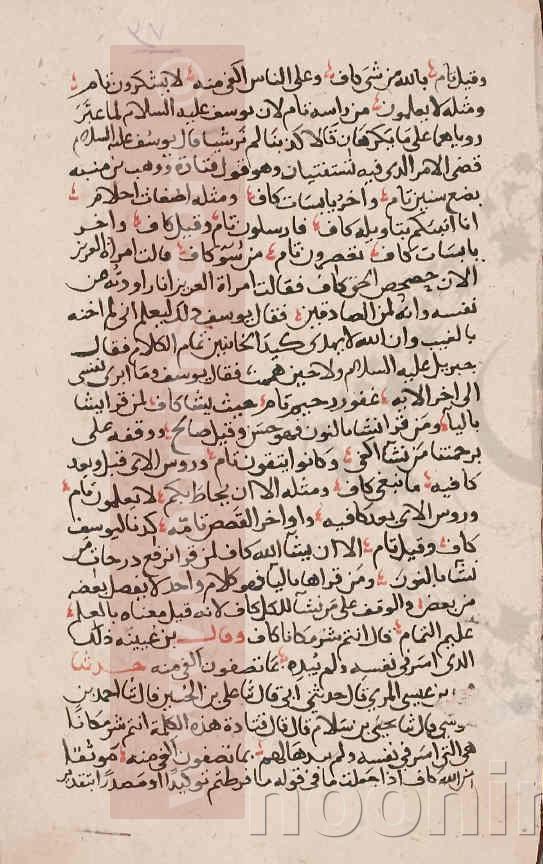 ٣٨
وقيل تام بالله من شي كاف وعلى الناس اكفى منه لا يشكرون تام
ومثله لا يعلمون من راسه تام لان يوسف عليه السلام لما عبر
روياهما على ما يكرهان قالا كذبنا لم نر شيا قال يوسف عليه السلام
قضى الامر الذى فيه تستفتيان وهو قول قتادة ووهب بن منبه
بضع سنين تام واخر يابسات كاف ومثله اضغاث احلام
انا انبيكم بتاويله كاف فارسلون تام وقيل كاف واخر
يابسات كاف تعصرون تام من سوء كاف قالت امراة العزيز
الان حصحص الحق كاف فقالت امراة العزيز انا راودته عن
نفسه وانه لمن الصادقين فقال يوسف ذلك ليعلم انى لم اخنه
بالغيب وان الله لا يهدى كيد الخاينين تمام الكلام فقال
جبريل عليه السلام ولا حين هممت فقال يوسف وما ابرى نفسى
الى اخر الاية غفور رحيم تام حيث يشا كاف لمن قرا يشا
باليا ومن قرا نشا بالنون فهو حسن وقيل صالح ووقفه على
برحمتنا من نشا اكفى وكانوا يتقون تام وروس الاى قبل وبعد
كافيه ما نبغى كاف ومثله الا ان يحاط بكم لا يعلمون تام
وروس الاى بعد كافيه واواخر القصص تامة كدنا ليوسف
كاف وقيل تام الا ان يشا الله كاف لمن قرا نرفع درجات من
نشا بالنون ومن قراها باليا فهو كلام واحد لا يفصل بعضه
من بعض والوقف على من نشا للكل كاف لانه قيل معناه بالعلم
عليم التمام قال انتم شر مكانا كاف وقال بن عيينه ذلك
الذى اسر فى نفسه ولم يبده بما تصفون اكفى منه حدثنا
بن عيسى المرى قال حدثنى ابى قال ثنا على بن الحسن قال ثنا احمد بن
موسى قال ثنا يحيى بن سلام قال قال قتادة هذه الكلمة انتم شر مكانا
هى التى اسر فى نفسه ولم يبدها لهم بما تصفون اكفى منه موثقا
من الله كاف اذا جعلت ما فى قوله ما فرطتم توكيدا او مصدرا بتقدير
noonir